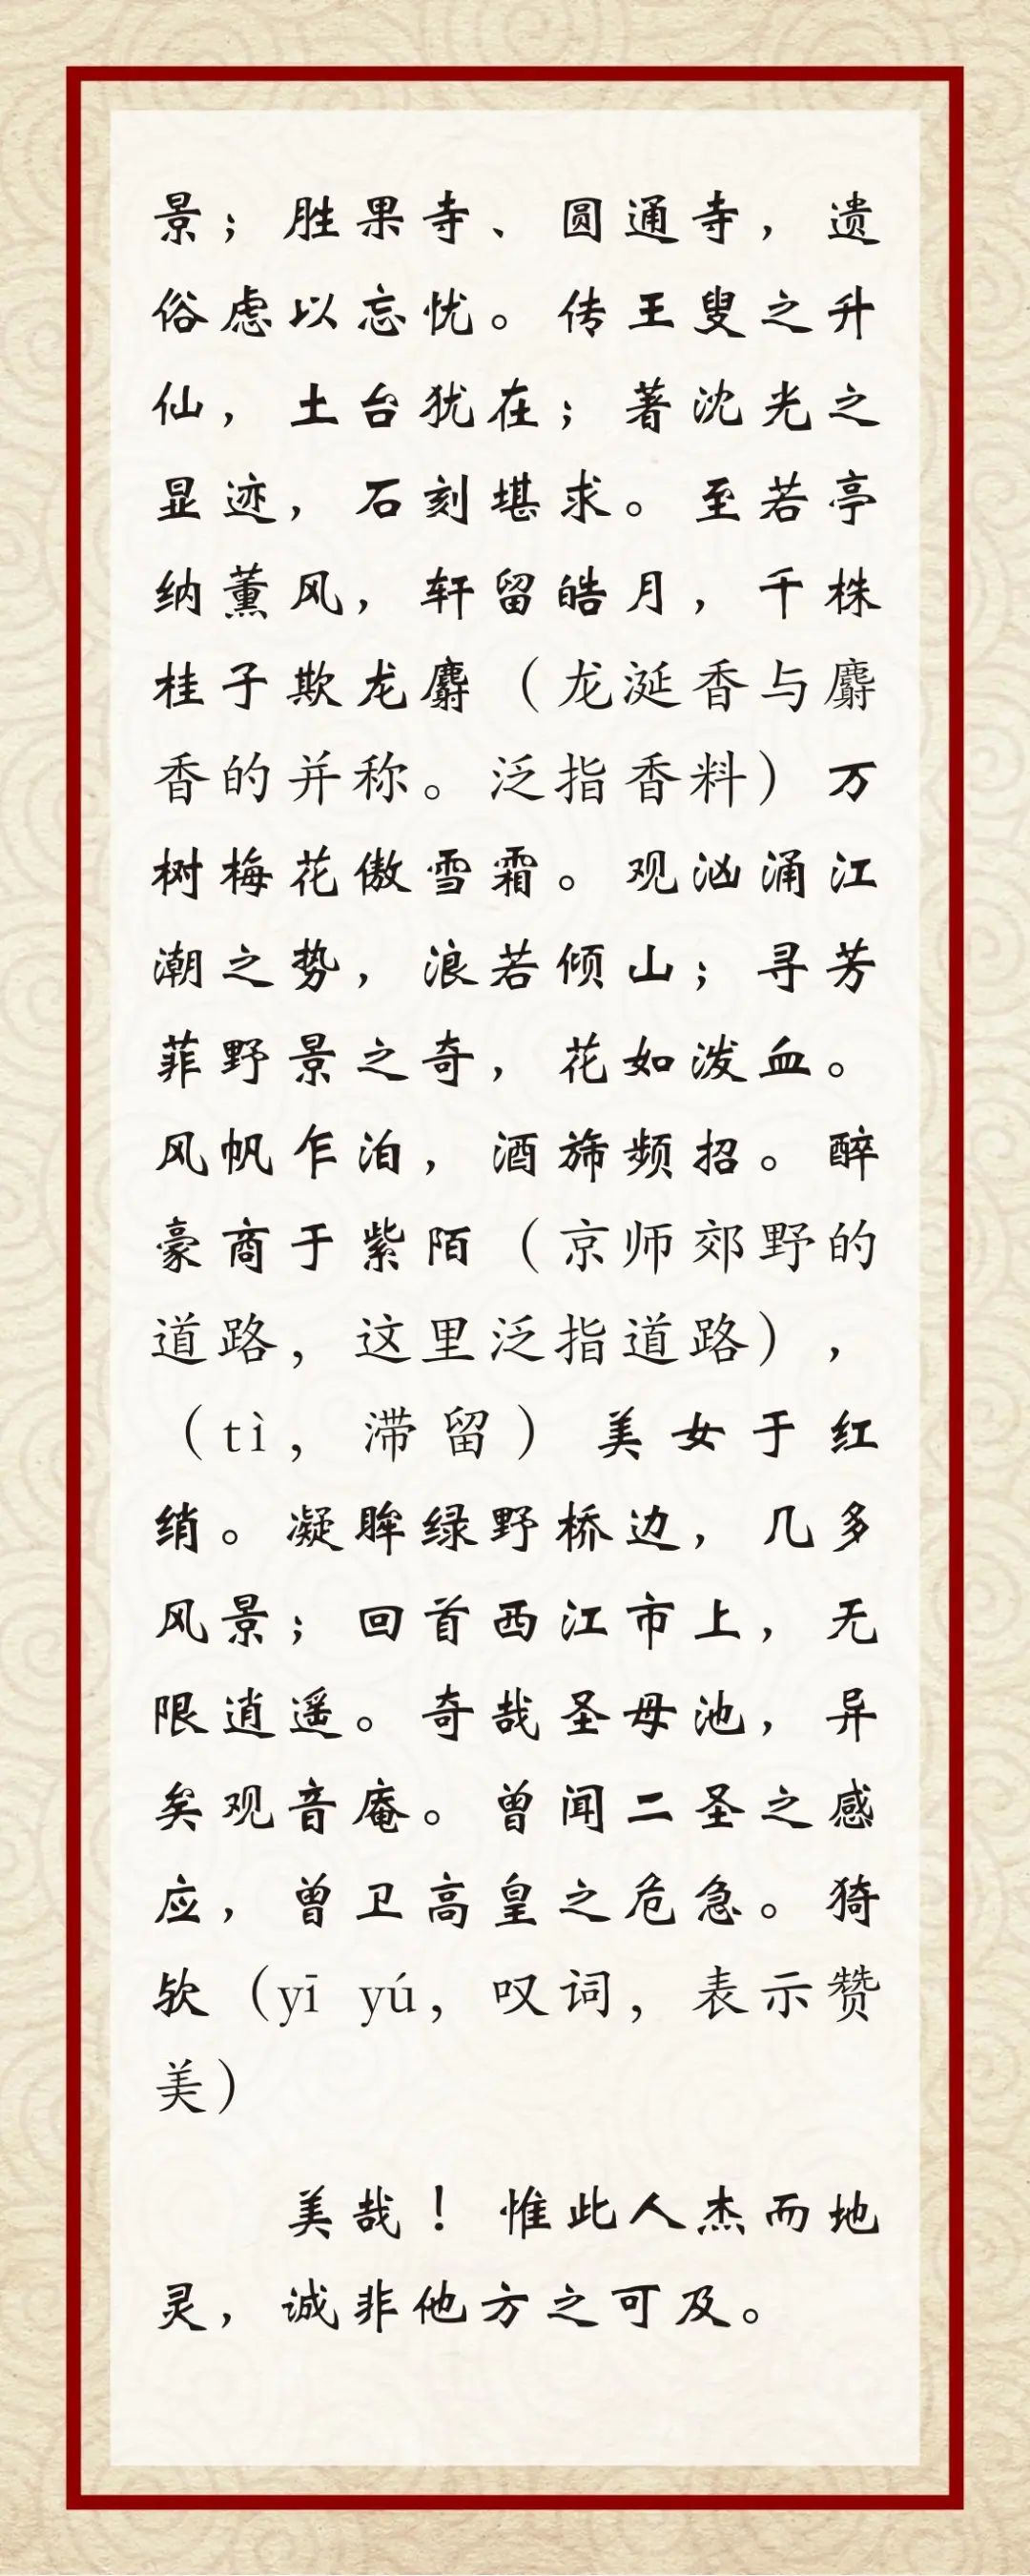 景；胜果寺、圆通寺，遗
俗虑以忘忧。传王叟之升
仙，土台犹在；著沈光之
显迹，石刻堪求。至若亭
纳薰风，轩留皓月，千株
桂子欺龙麝（龙涎香与麝
香的并称。泛指香料）万
树梅花傲雪霜。观汹涌江
潮之势，浪若倾山；寻芳
菲野景之奇，花如泼血。
风帆乍泊，酒旆频招。醉
豪商于紫陌（京师郊野的
道路，这里泛指道路），
（tì，滞留）美女于红
绡。凝眸绿野桥边，几多
风景；回首西江市上，无
限逍遥。奇哉圣母池，异
矣观音庵。曾闻二圣之感
应，曾卫高皇之危急。猗
欤（yī yú，叹词，表示赞
美）
美哉！惟此人杰而地
灵，诚非他方之可及。